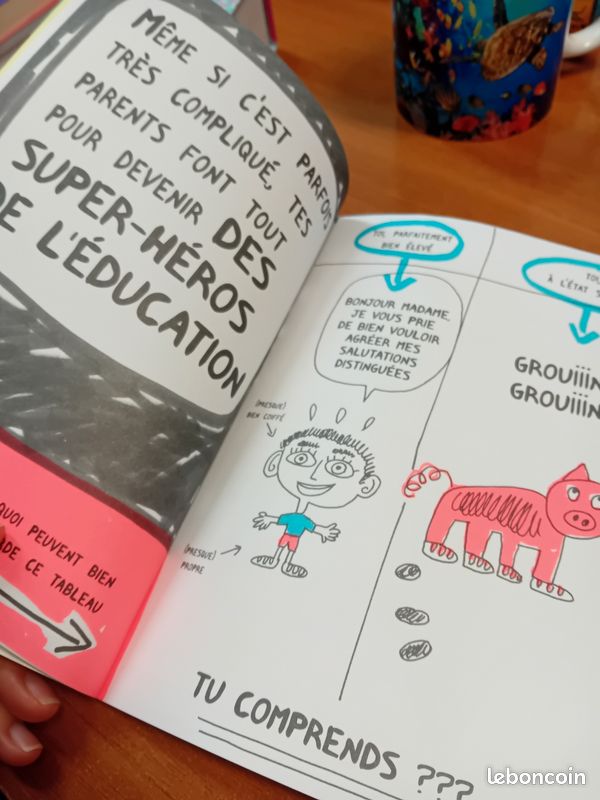 MÊME SI C'EST PARFOIS
TRÈS COMPLIQUÉ, TES
PARENTS FONT TOUT
POUR DEVENIR DES
SUPER-HÉROS
DE L'ÉDUCATION
QUOI PEUVENT BIEN
CE TABLEAU
TOI, PARFAITEMENT
BIEN ÉLEVÉ
BONJOUR MADAME,
JE VOUS PRIE
DE BIEN VOULOIR
AGRÉER MES
SALUTATIONS
DISTINGUÉES
(PRESQUE)
BIEN COIFFÉ
(PRESQUE)
PROPRE
TOI,
À L'ÉTAT S
GROUiiiN
GROUiiiN
TU COMPRENDS ???
leboncoin